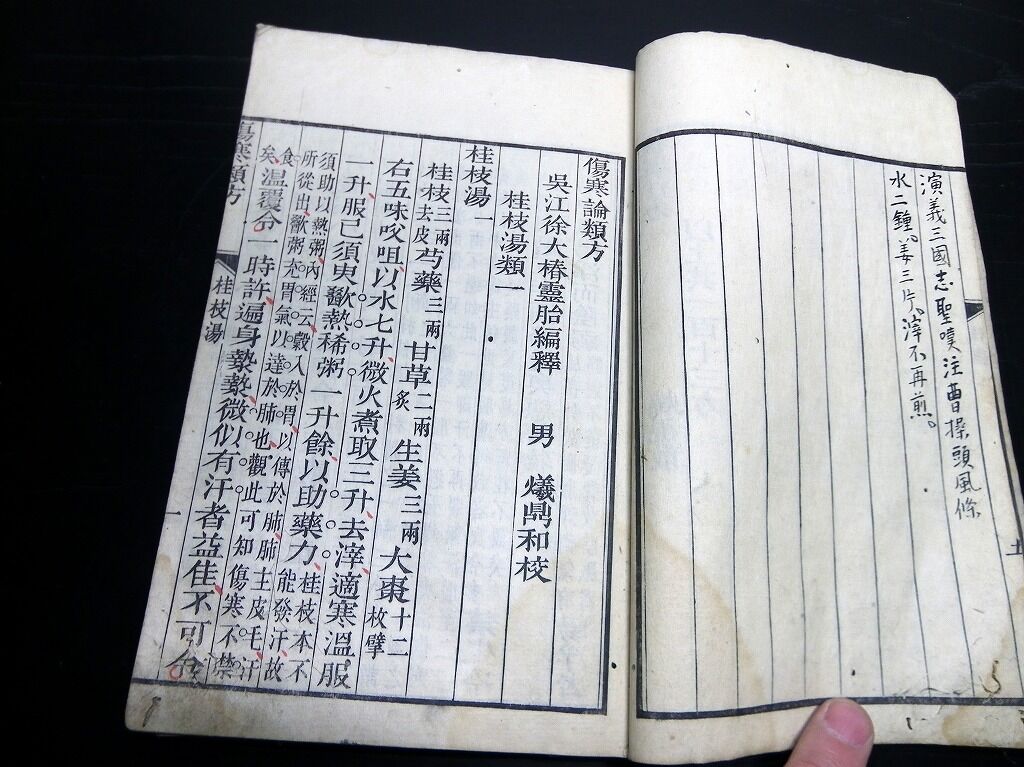 演義三國志聖嘆注曹操頭風條
水二鐘姜三片滓不再煎。
土
傷寒論類方
吳江徐大椿靈胎編釋 男 爔鼎和校
桂枝湯類一
桂枝湯一
桂枝三兩去皮芍藥三兩甘草二兩炙生姜三兩大棗十二枚擘
右五味㕮咀以水七升微火煮取三升去滓適寒溫服
一升服已須臾歠熱稀粥一升餘以助藥力桂枝本不能發汗故
須助以熱粥內經云穀入於胃以傳於肺肺主皮毛汗
所從出歠粥充胃氣以達於肺也觀此可知傷寒不禁
食矣溫覆令一時許遍身漐漐微似有汗者益佳不可令
傷寒類方
桂枝湯
一